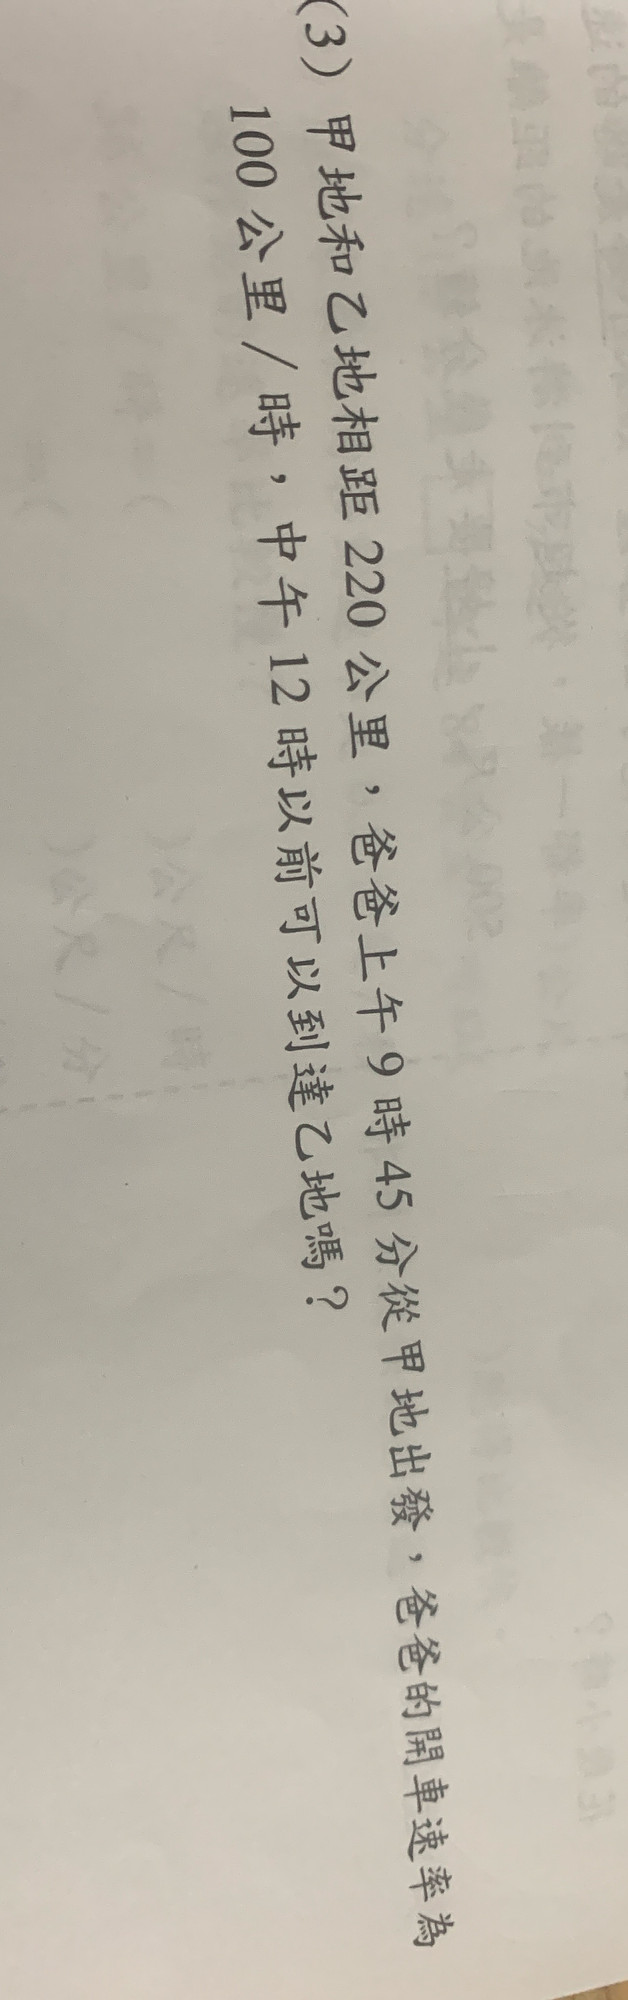 (3) 甲地和乙地相距 220 公里，爸爸上午 9 時 45 分從甲地出發，爸爸的開車速率為
100 公里／時，中午 12 時以前可以到達乙地嗎？